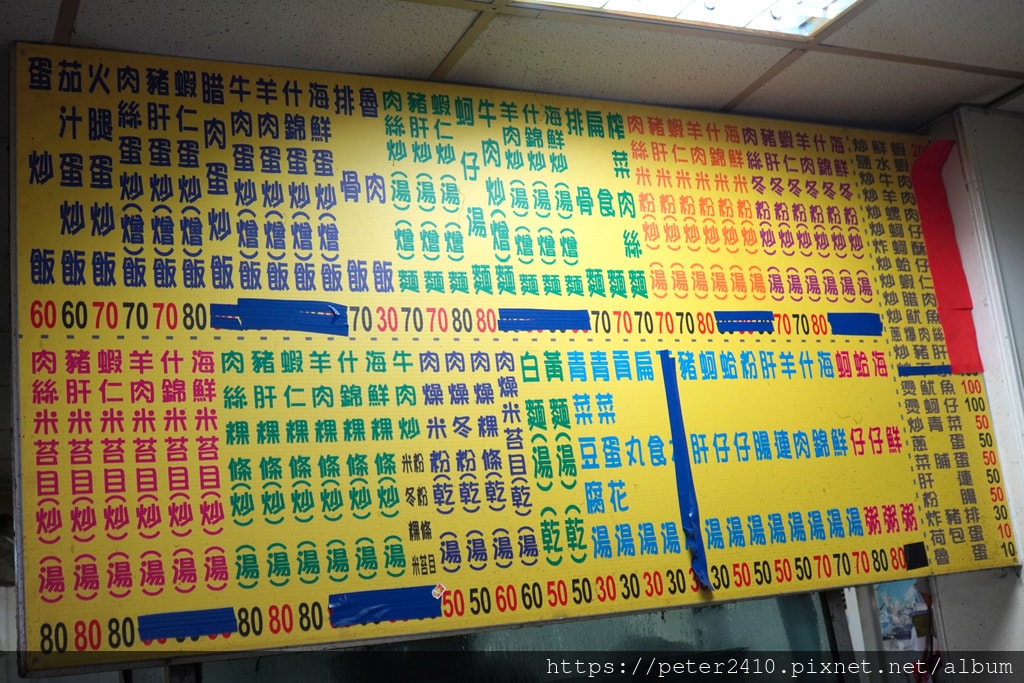 蛋炒飯
茄汁蛋炒飯
火腿蛋炒飯
肉絲蛋炒(燴)飯
豬肝蛋炒(燴)飯
蝦仁蛋炒(燴)飯
腊肉蛋炒飯
牛肉蛋炒(燴)飯
羊肉蛋炒(燴)飯
什錦蛋炒(燴)飯
海鮮蛋炒(燴)飯
排骨飯
魯肉飯
肉絲炒(湯)(燴)麵
豬肝炒(湯)(燴)麵
蝦仁炒(湯)(燴)麵
蚵仔湯麵
牛肉炒(燴)麵
羊肉炒(湯)(燴)麵
什錦炒(湯)(燴)麵
海鮮炒(湯)(燴)麵
排骨麵
扁食麵
榨菜肉絲麵
肉絲米粉(炒)(湯)
豬肝米粉(炒)(湯)
蝦仁米粉(炒)(湯)
羊肉米粉(炒)(湯)
什錦米粉(炒)(湯)
海鮮米粉(炒)(湯)
肉絲冬粉(炒)(湯)
豬肝冬粉(炒)(湯)
蝦仁冬粉(炒)(湯)
羊肉冬粉(炒)(湯)
什錦冬粉(炒)(湯)
海鮮冬粉(炒)(湯)
60 60 70 70 70 80 70 30 70 70 80 80 70 70 70 70 70 80 70 70 80
肉絲米苔目(炒)(湯)
豬肝米苔目(炒)(湯)
蝦仁米苔目(炒)(湯)
羊肉米苔目(炒)(湯)
什錦米苔目(炒)(湯)
海鮮米苔目(炒)(湯)
肉絲粿條(炒)(湯)
豬肝粿條(炒)(湯)
蝦仁粿條(炒)(湯)
羊肉粿條(炒)(湯)
什錦粿條(炒)(湯)
海鮮粿條(炒)(湯)
牛肉炒米粉 冬粉 粿條 米苔目
肉燥米粉(乾)(湯)
肉燥冬粉(乾)(湯)
肉燥粿條(乾)(湯)
肉燥米苔目(乾)(湯)
白麵(湯)(乾)
黃麵(湯)(乾)
青菜豆腐湯
青菜蛋花湯
貢丸湯
扁食湯
豬肝湯
蚵仔湯
蛤仔湯
粉腸湯
肝連湯
羊肉湯
什錦湯
海鮮湯
蚵仔粥
蛤仔粥
海鮮粥
80 80 80 80 80 80 50 50 60 60 50 50 30 30 30 30 30 50 50 50 50 70 70 70 80 80
炒鮮蝦
鹽水蝦
炒牛肉
炒羊肉
炒螺肉
炒蚵仔
炸蚵酥
炒蛤仔
炒腊肉
炒魷魚
蔥爆肉絲
炒豬肝
燙魷魚 100
燙蚵仔 100
炒青菜 50
蔥蛋 50
菜脯蛋 50
肝連 50
粉腸 50
炸豬排 30
荷包蛋 10
魯蛋 10
https://peter2410.pixnet.net/album